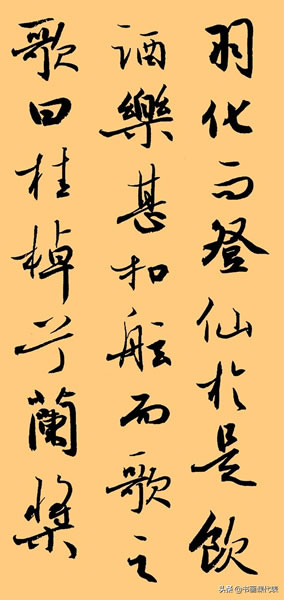 羽化而登仙於是飲
酒樂甚扣舷而歌之
歌曰桂棹兮蘭槳
头条@书画课代表